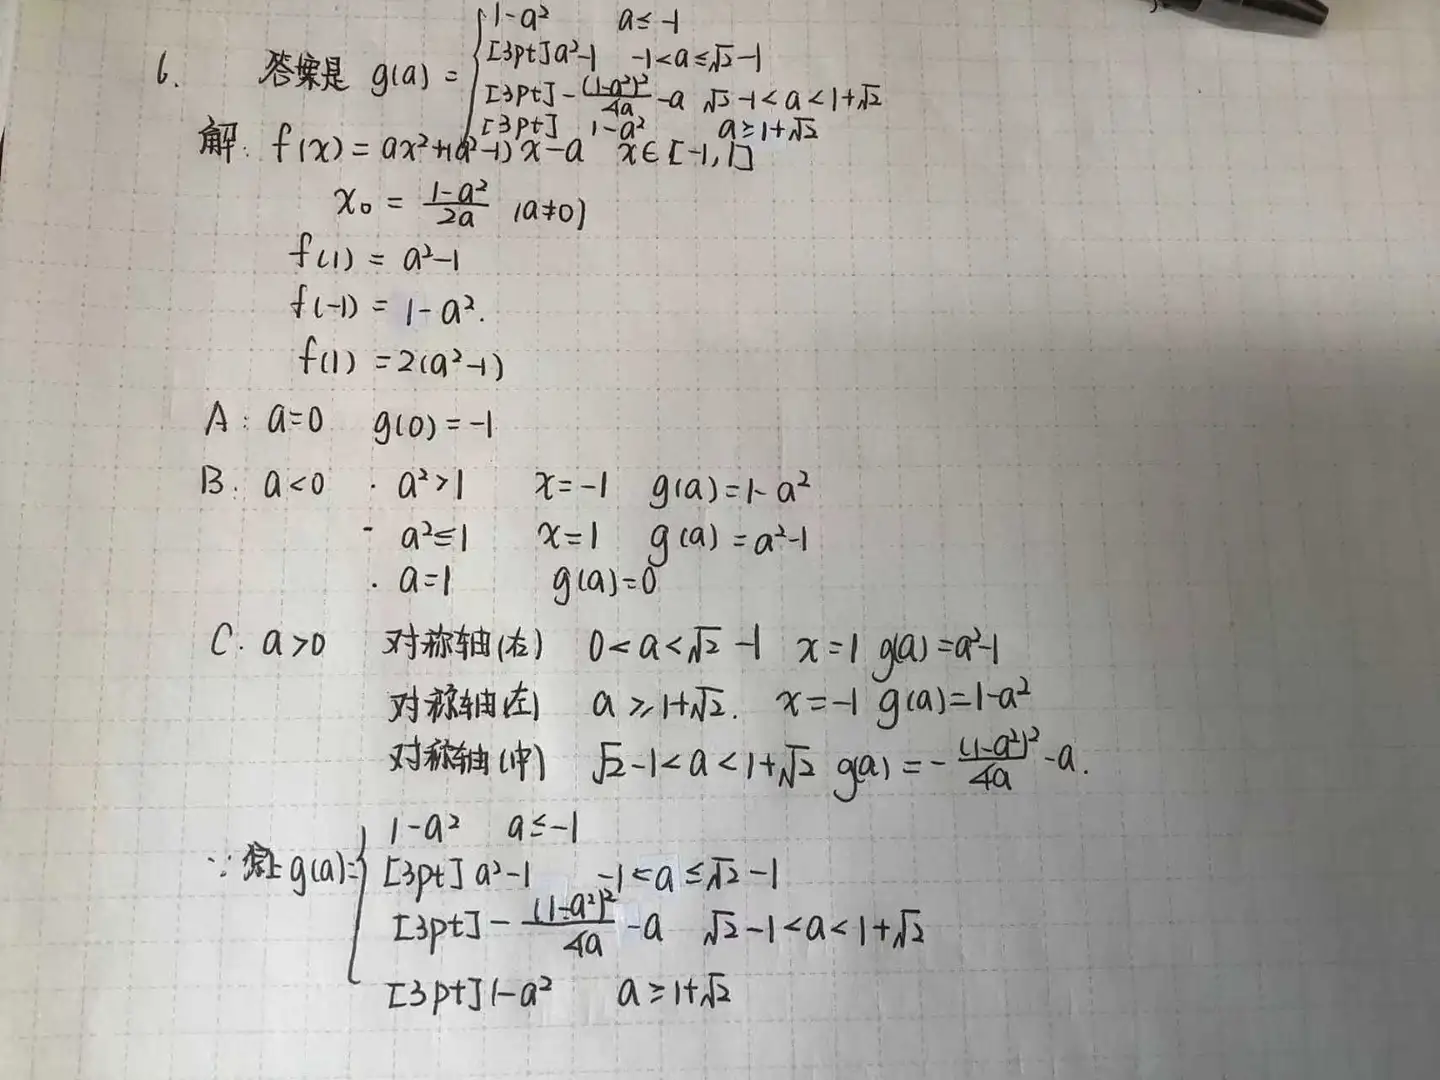 6. 答案是 g(a) = { 1-a² a≤-1
[3pt]a²-1 -1<a≤√2-1
[3pt]-(1-a²)²/4a -a √2-1<a<1+√2
[3pt] 1-a² a≥1+√2
解: f(x)=ax²+(a²-1)x-a x∈[-1,1]
x₀ = 1-a²/2a (a≠0)
f(1) = a²-1
f(-1) = 1-a².
f(1) = 2(a²-1)
A: a=0 g(0)=-1
B. a<0 · a²>1 x=-1 g(a)=1-a²
- a²≤1 x=1 g(a)=a²-1
· a=1 g(a)=0
C. a>0 对称轴(右) 0<a<√2-1 x=1 g(a)=a²-1
对称轴(左) a≥1+√2. x=-1 g(a)=1-a²
对称轴(中) √2-1<a<1+√2 g(a)=-(1-a²)²/4a -a.
∵综上g(a)={ 1-a² a≤-1
[3pt] a²-1 -1<a≤√2-1
[3pt]-(1-a²)²/4a -a √2-1<a<1+√2
[3pt]1-a² a≥1+√2